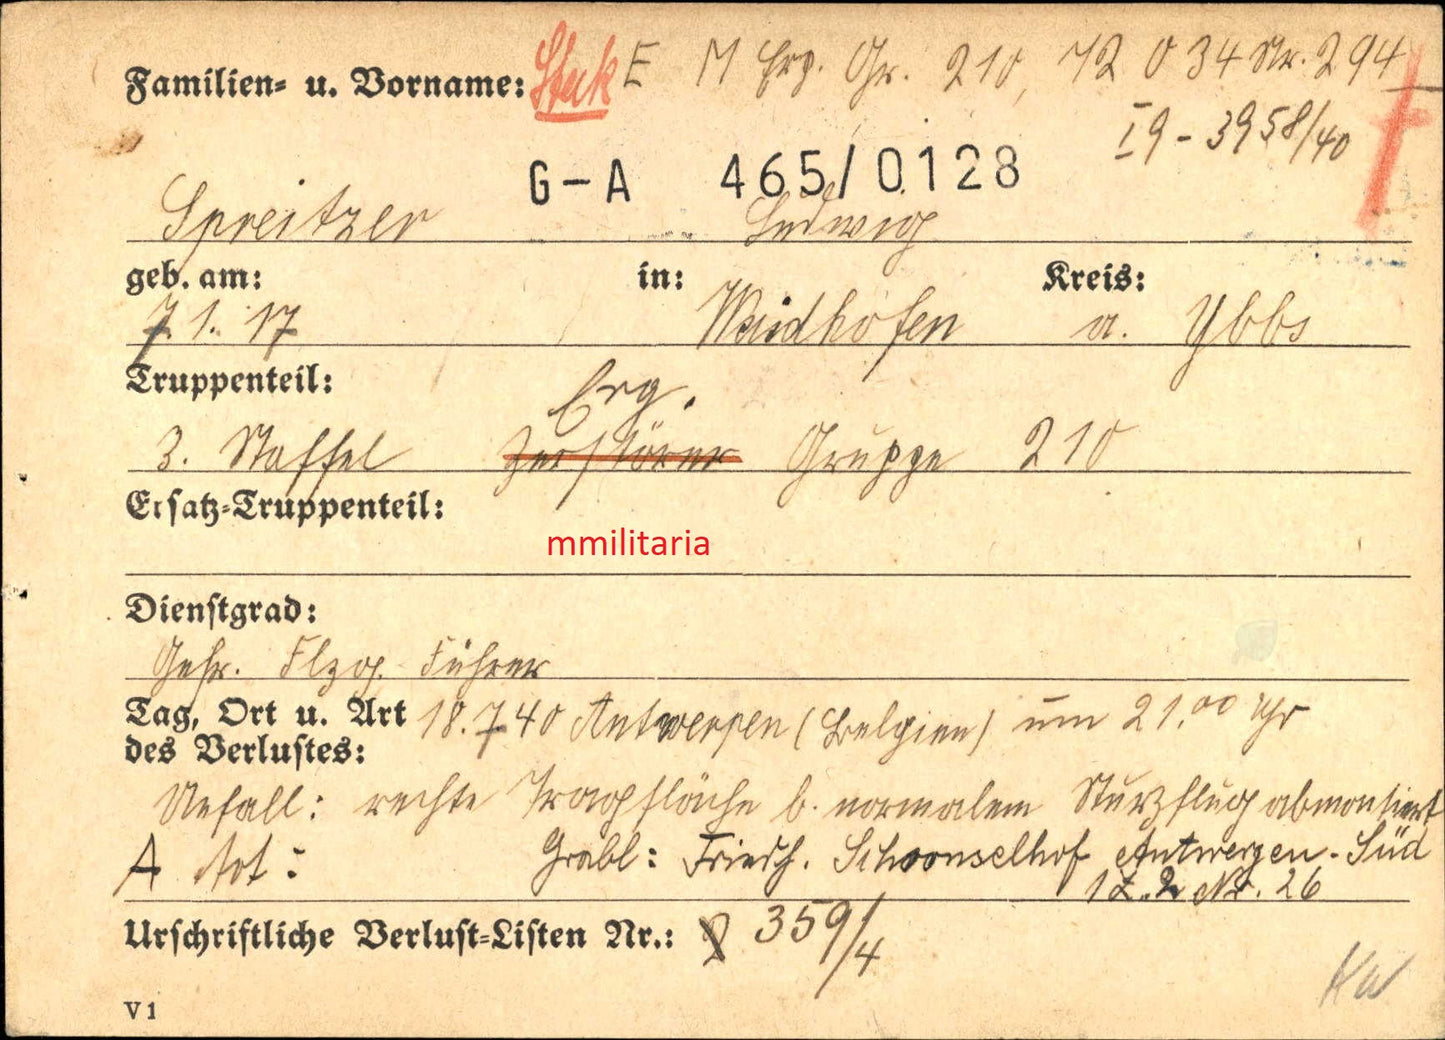 Familien- u. Vorname: Stuk E M Erg. Gr. 210, 72 0 34 Nr. 294
I 9 - 3958/40
G-A 465/0128
Spreitzer Ludwig
geb. am: in: Kreis:
7.1. 17 Waidhofen a. Ybbs
Truppenteil:
Erg.
3. Staffel Zerstörer Gruppe 210
Ersatz-Truppenteil:
mmilitaria
Dienstgrad:
Gefr. Flzg. Führer
Tag, Ort u. Art 18.7.40 Antwerpen (Belgien) um 21.00 Uhr
des Verlustes:
Unfall: rechte Tragfläche b. normalem Sturzflug abmontiert
A tot: Grabl: Friedh. Schoonselhof Antwerpen-Süd
Nr. 26
Urschriftliche Verlust-Listen Nr.: 359/4
V 1